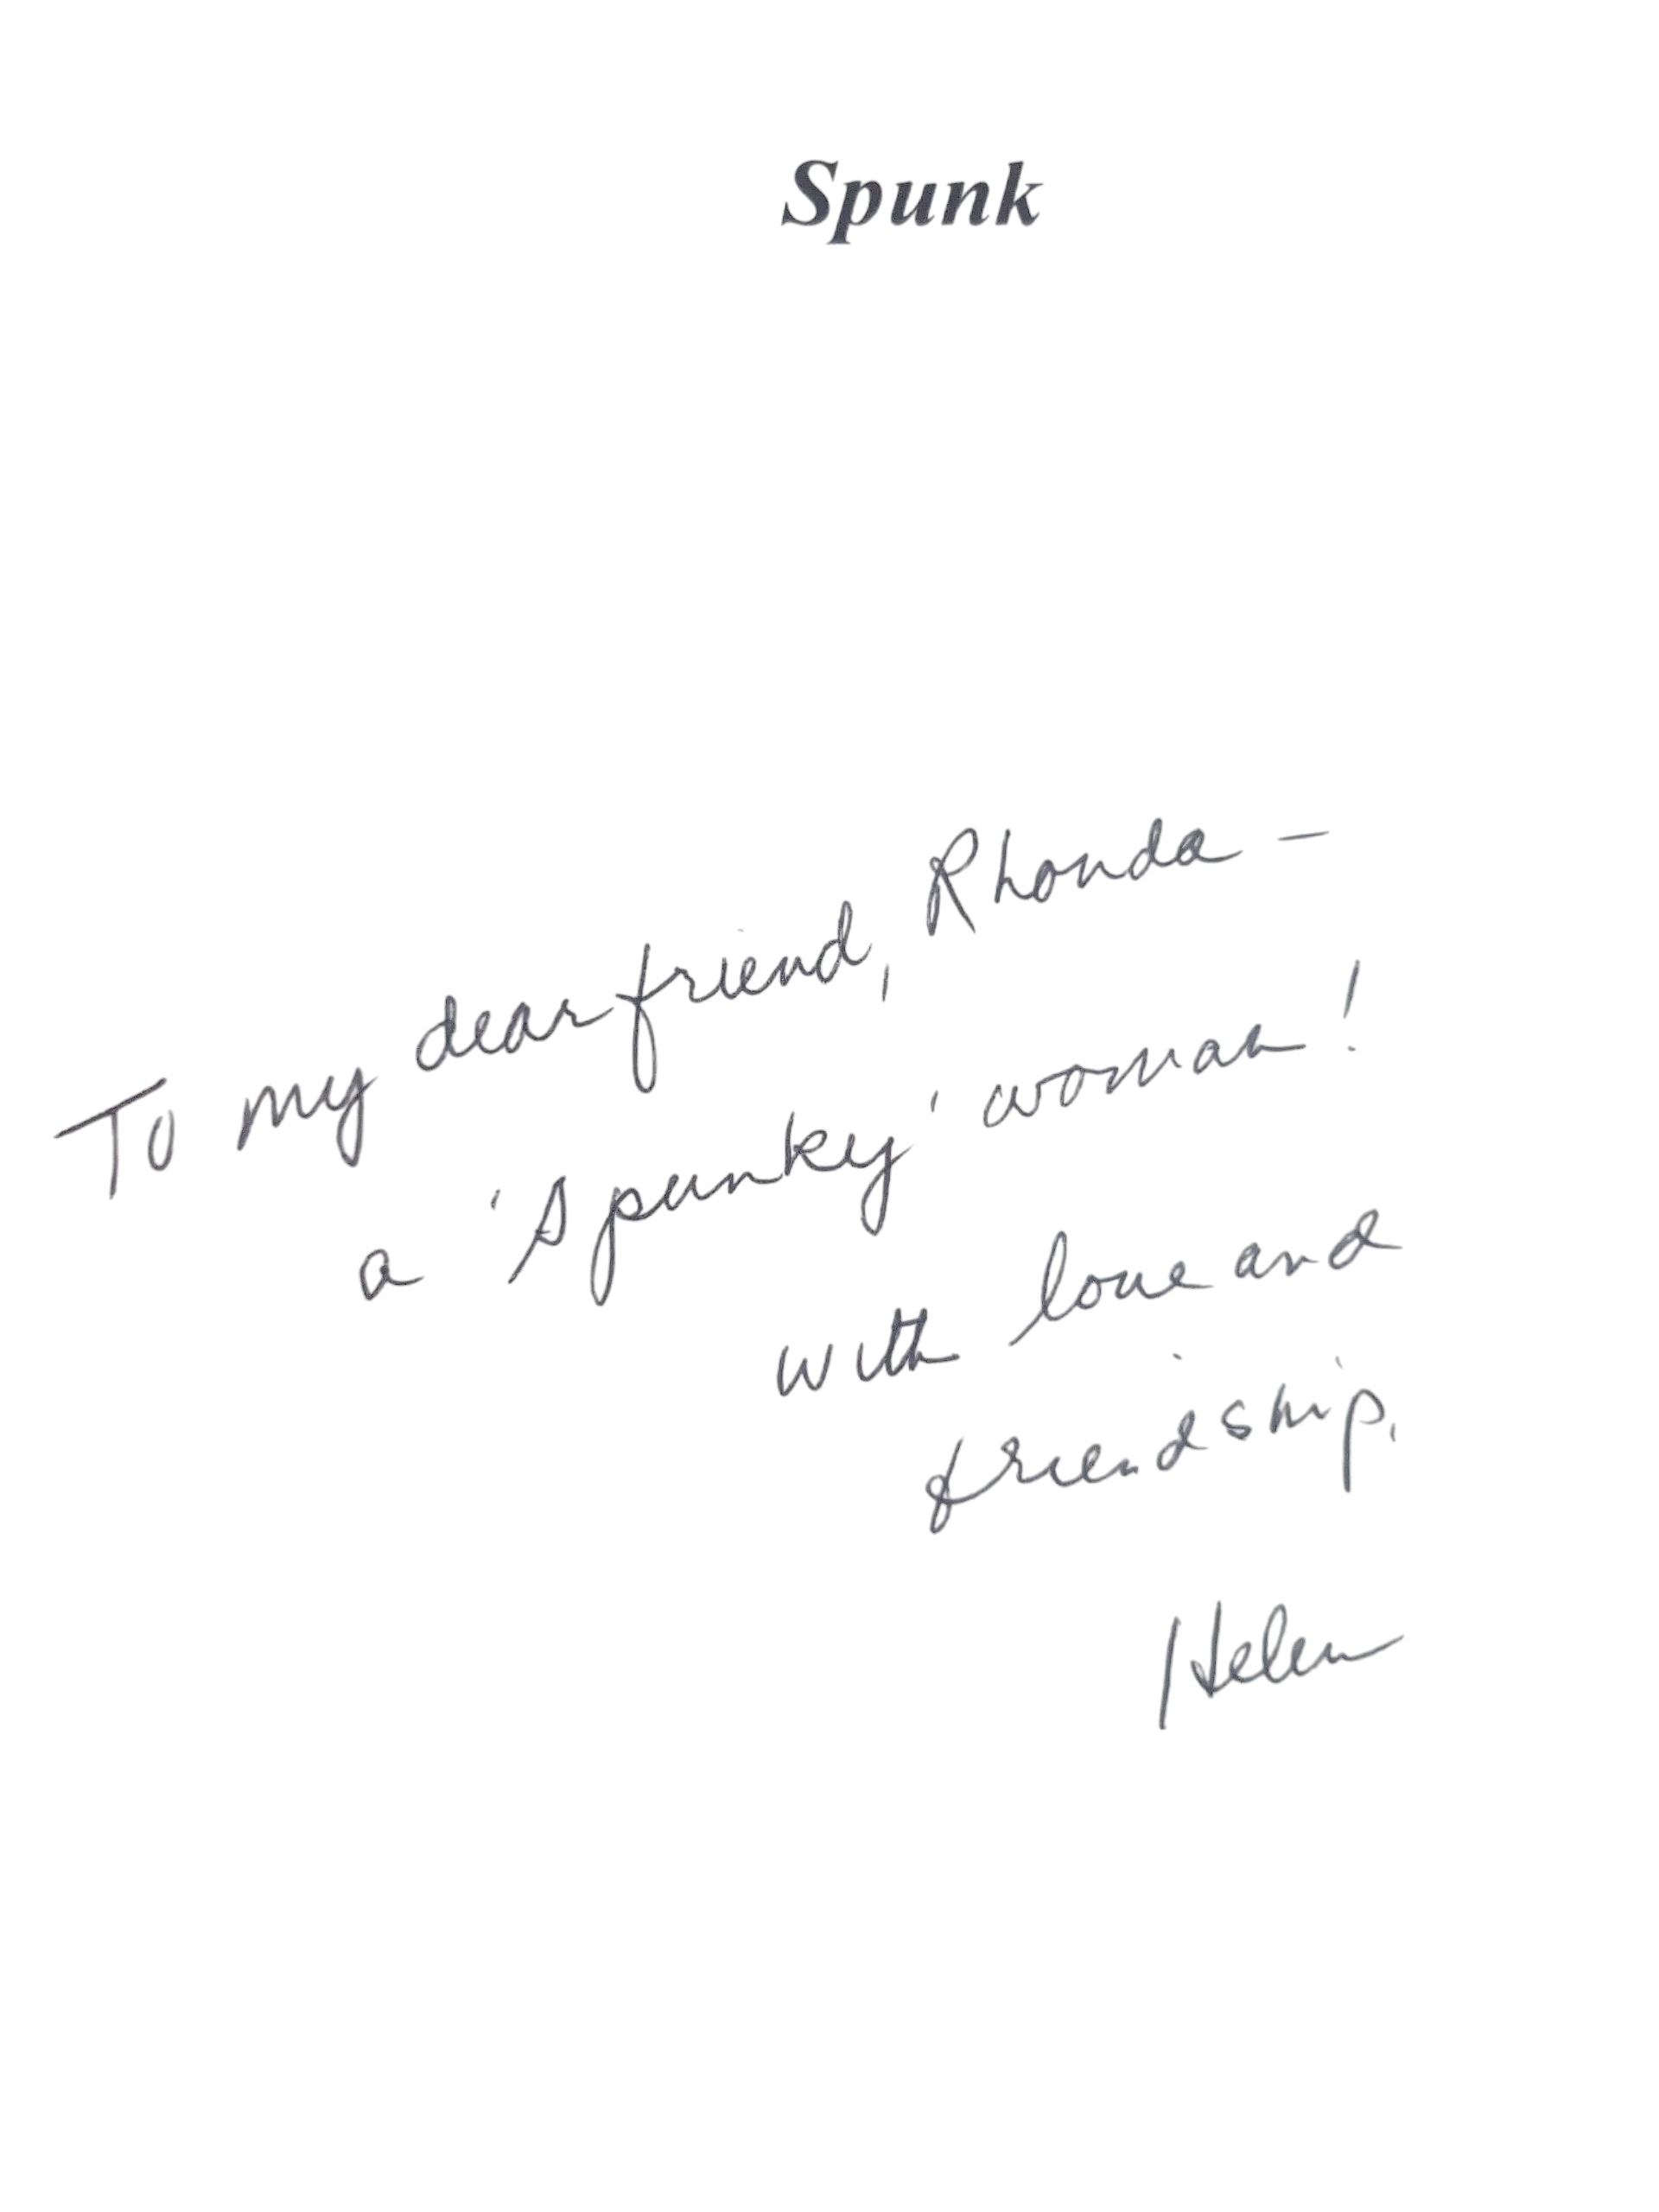 Spunk
To my dear friend, Rhonda –
a 'Spunky' woman!
with love and
friendship,
Helen